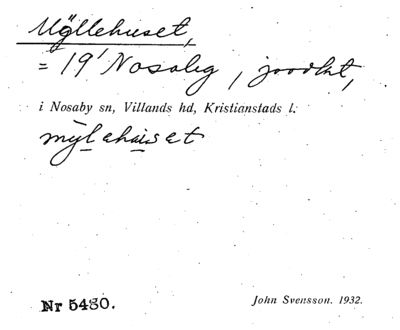 Myllehuset,
= 19¹ Nosaby, jordbt,
i Nosaby sn, Villands hd, Kristianstads l.
Nr 5480.
John Svensson. 1932.